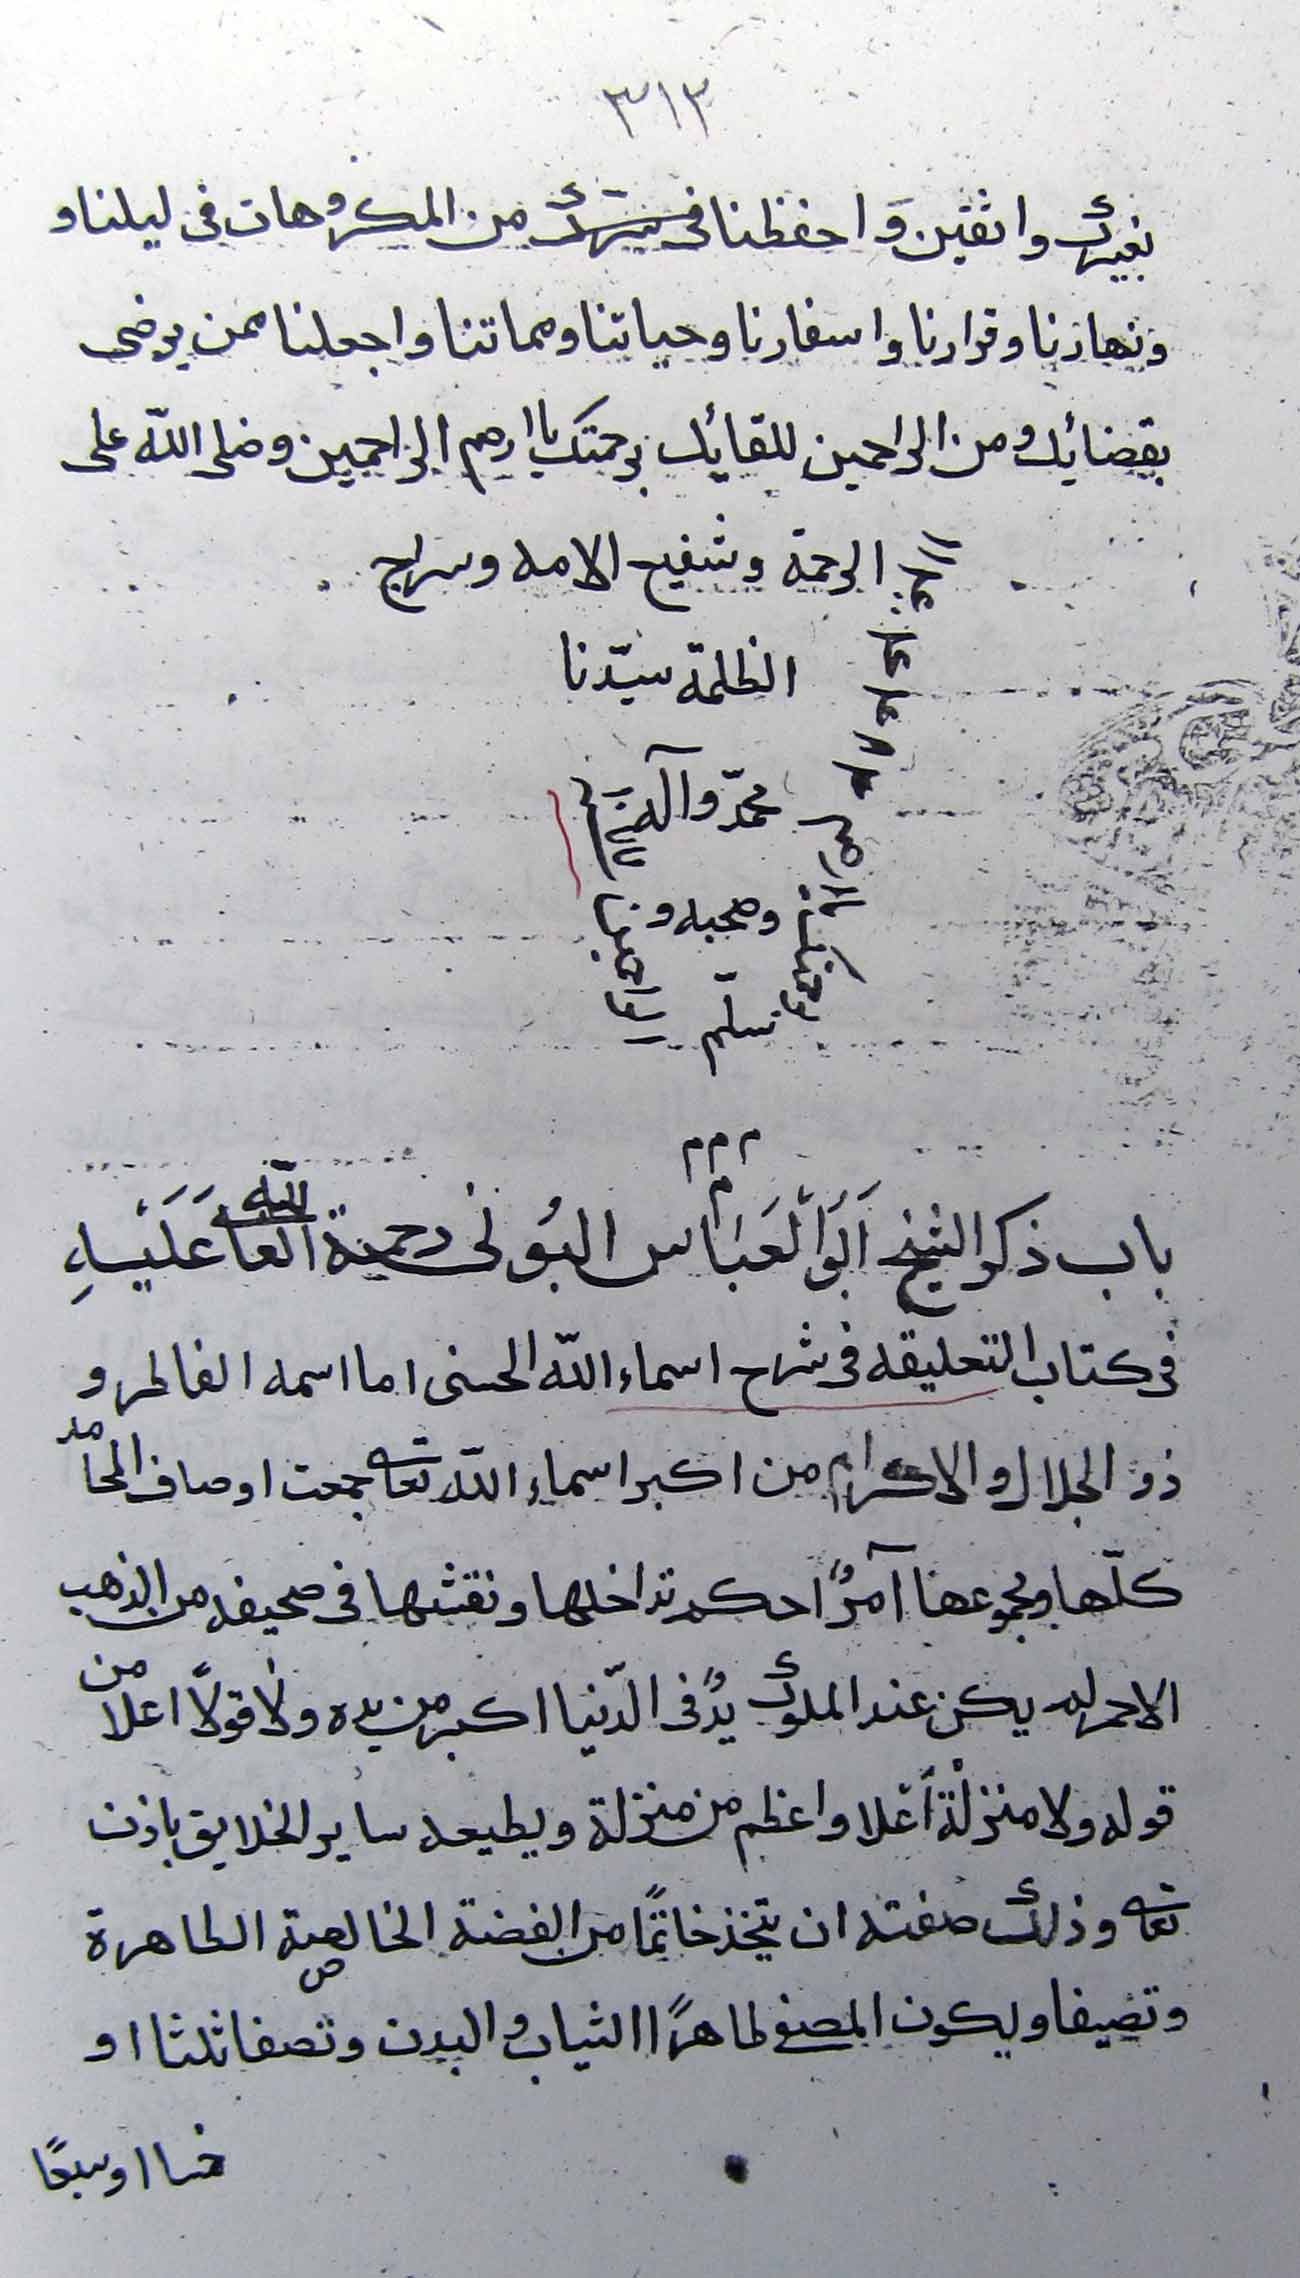 ٣١٢
بغيرك واثقين واحفظنا فى من المكروهات فى ليلنا و
ونهارنا وقرارنا واسفارنا وحياتنا ومماتنا واجعلنا ممن يرضى
بقضائك ومن الراحمين للقايك برحمتك يا ارحم الراحمين وصلى الله على
الرحمة وشفيع الامه وسراج
الظلمة سيّدنا
محمّد وآله
وصحبه و
سلّم
م م م
م
باب ذكر الشيخ اَبَوا لْعَبَاس البُونى رحمة الله
فى كتاب التعليقه فى شرح اسماء الله الحسنى اما اسمه الفاطر و
ذو الجلال والاكرام من اكبر اسماء الله تعا جمعت اوصاف المحامد
كلّها ومجموعها آمرٌ احكم تداخلها ونقشها فى صحيفه من الذهب
الاحمر لم يكن عند الملوك يدٌ فى الدّنيا اكبر من يده ولا قولاً اعلا من
قوله ولا منزلة أعلا واعظم من منزلة ويطيعه ساير الخلايق باذن
تعا وذلك صفته ان يتخذ خاتمًا من الفضة الخالصة الطاهرة
وتصيفا ويكون طاهرًا الثياب والبدن وتصفا ثلثا او
خسا اوسبعًا